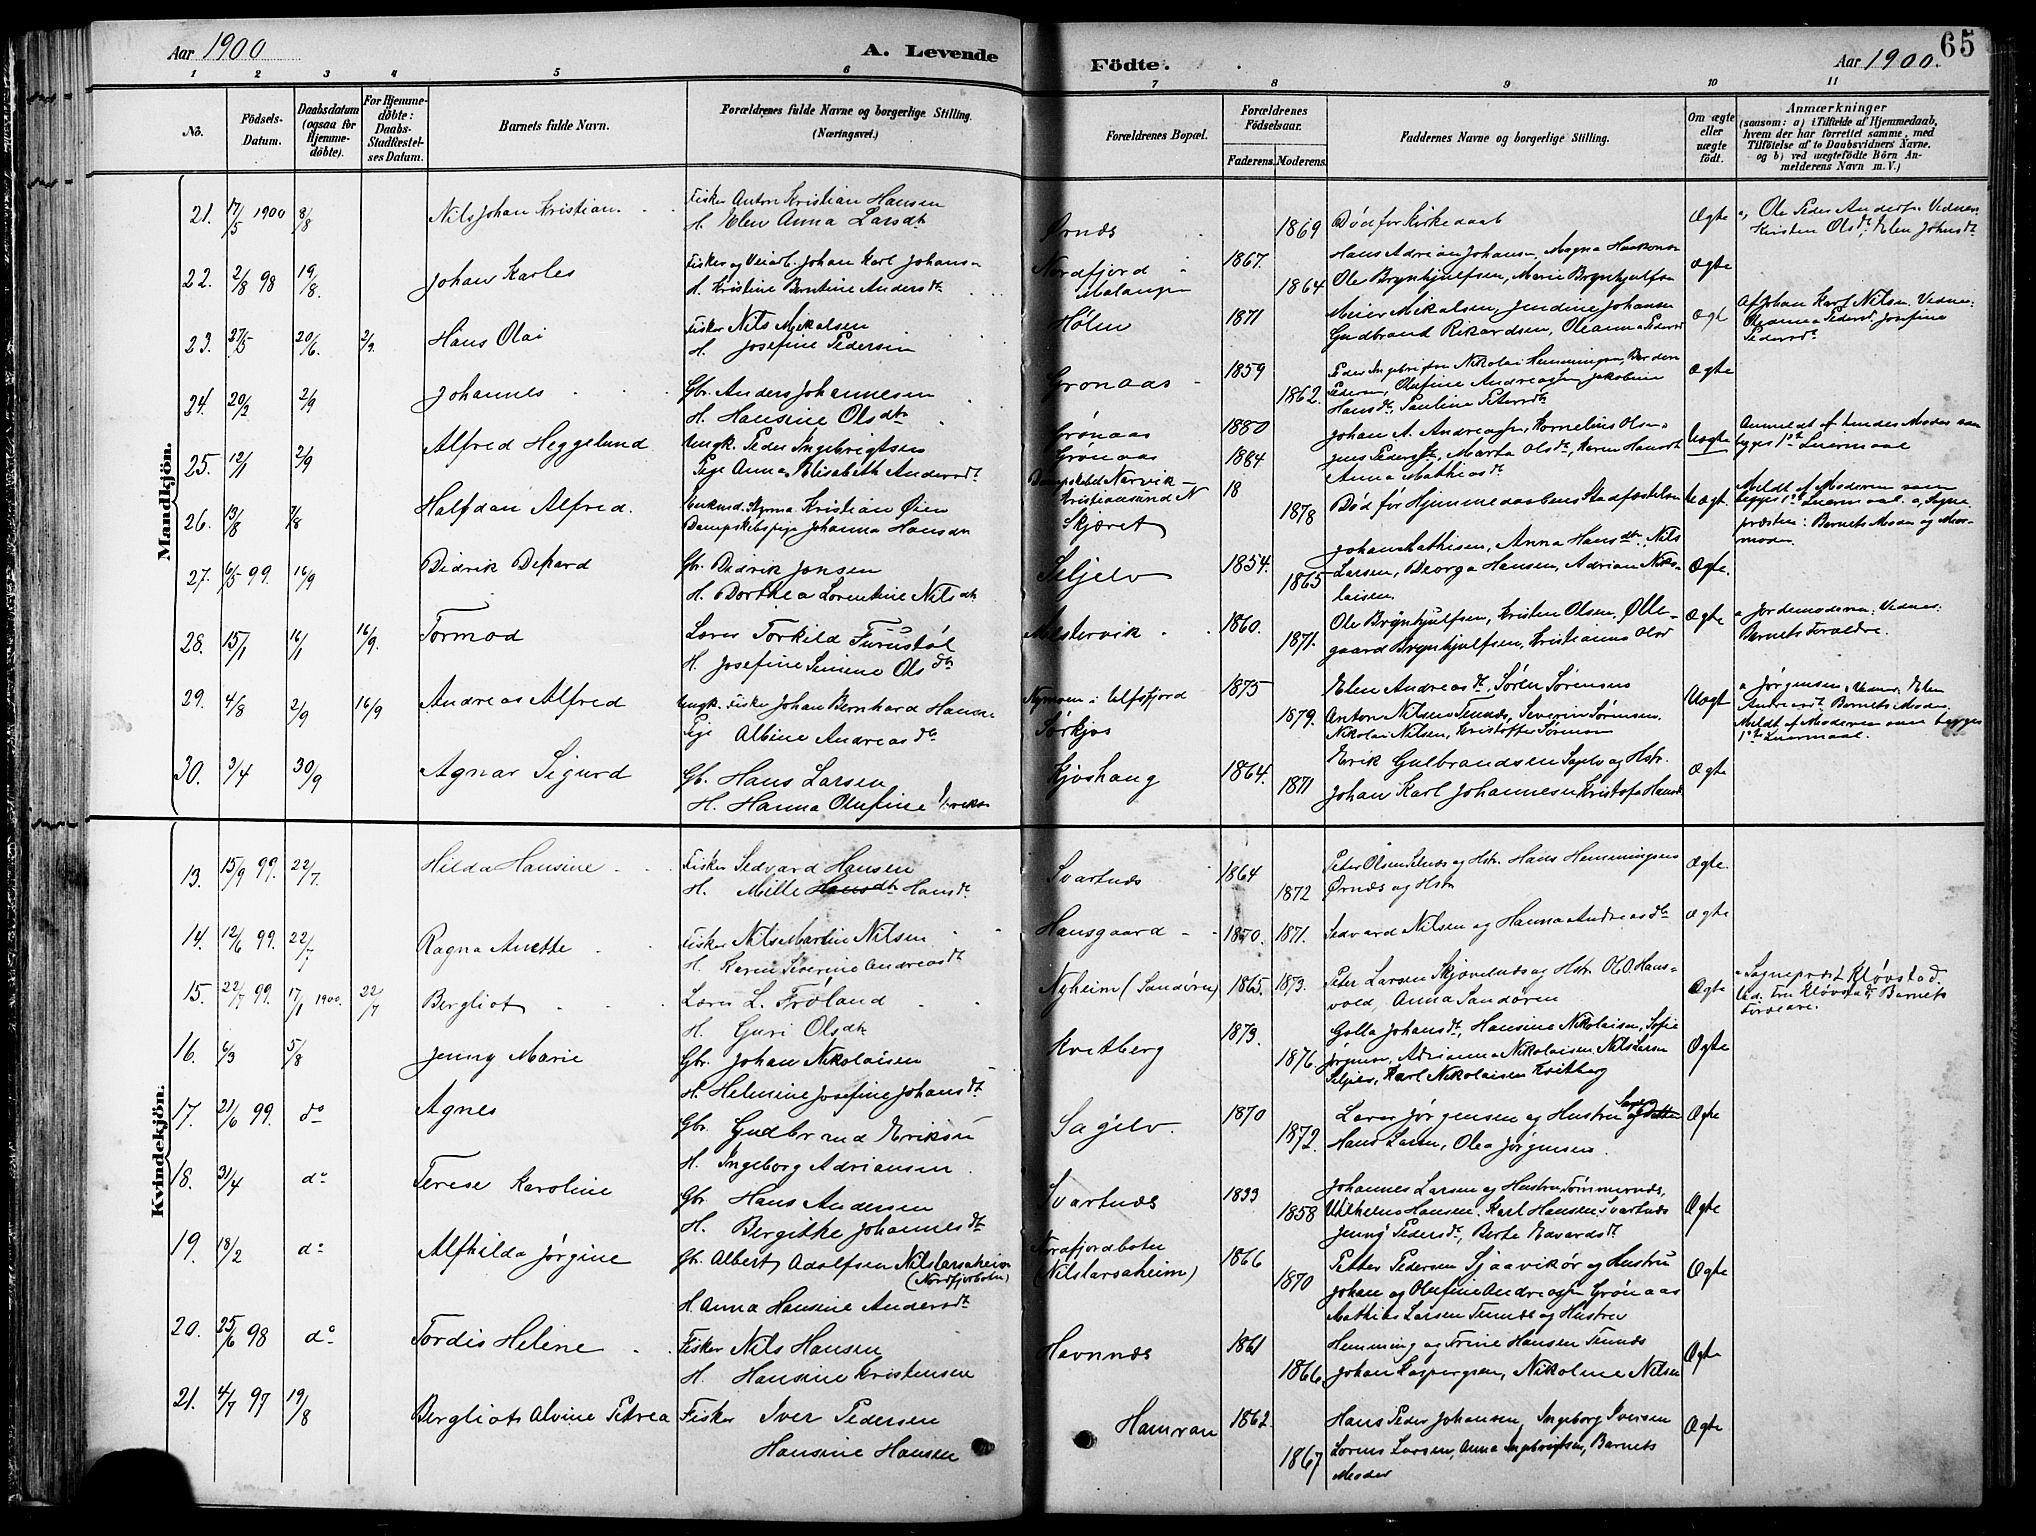 Aar 1900 A. Levende Födte. Aar 1900. 65
1 2 3 4 5 6 7 8 9 10 11
No.
Födsels-Datum.
Daabsdatum (ogsaa for Hjemme-döbte).
For Hjemme-döbte: Daabs-Stadfæstel-ses Datum.
Barnets fulde Navn.
Forældrenes fulde Navne og borgerlige Stilling. (Næringsvei.)
Forældrenes Bopæl.
Forældrenes Födselsaar.
Faderens. Moderens.
Faddernes Navne og borgerlige Stilling.
Om ægte eller uægte födt.
Anmærkninger
(saasom: a) i Tilfælde af Hjemmedaab, hvem der har forrettet samme, med Tilföielse af to Daabsvidners Navne. og b) ved uægtefödte Börn An-melderens Navn m. V.)
Mandkjön.
21. 17/5 1900 8/8 Nils Johan Kristian Fisker Anton Kristian Hansen
H. Elen Anna Larsdtr Ørnæs 1869 Død før Kirkedaab Ægte a, Ole Peder Anders. Vedner:
Kristen Olsdt, Elen Johnsdt
22. 2/8 98 19/8. Johan Karles Fisker og Veiarb. Johan Karl Johans-
H. Kristine Berntine Andersdt Nordfjord Malangen 1867. 1864 Hans Adrian Johans-, Magna Haakons-
Ole Brynhjulfsen, Marie Brynhjulfsen Ægte
23. 27/5 20/6. 2/9. Hans Olai Fisker Nils Mikalsen
H. Josefine Pedersen Holm 1871 Meier Mikalsen, Jendine Johansen
Gudbrand Rikardsen, Oleanna Pedersd Ægt Af Johan Karl Nilsen. Vedner:
Oleanna Pedersd. Josefine
Pedersdt
24. 20/2 2/9 Johannes Gbr. Anders Johannesen
H. Hansine Olsdtr Grønaas 1859 1862. Peder Ingebrigtsen Nikolai Hemmingsen,
Pedersen, Olufine Andreassen, Jakobine
Hansdt, Pauline Petersdt Ægte
25. 12/1 2/9 Alfred Heggelund Ungk. Peder Ingebrigtsen
Pige Anna Elisabeth Andersdt Grønaas
Grønaas 1880 1884 Johan A. Andreasen, Kornelius Olsen
Jens Pedersen, Marta Olsdt, Karen Hansdt
Anna Mathiasdt Uægte Anmeldt af hendes Moder som
begges 1st Leiermaal
26. 13/8 7/8 Halfdan Alfred. Styrm. Kristian Øien
Dampskibspige Johanna Hansdtr Dampskibet Narvik
Kristiansund N
Skjæret 18 1878 Død før Hjemmedaabens Stadfæstelse Uægt. Meldt af Moderen som
begges 1st Leiermaal. a, Sogne
præsten: Barnets Moder og Mor-
moder.
27. 6/5 99. 16/9 Didrik Dekard Gbr. Didrik Jonsen
H. Dorthea Lorentine Nilsdtr Seljelv 1854. 1865 Johan Mathisen, Anna Hansdtr, Nils
Larsen, Georga Hansen, Adrian Niko-
laisen. Ægte.
28. 15/1 16/1 16/9. Tormod Lærer Torkild Furustøl
H. Josefine Olsdtr Mestervik 1860. 1871. Ole Brynhjulfsen, Kristen Olsen, Ølle-
gaard Brynhjulfsen, Kristianna Olsd Ægte a Jordemoderen: Vedner:
Barnets Forældre.
29. 4/8 2/9 16/9 Andreas Alfred Ungk. Fisker Johan Bernhard Hansen
Pige Albine Andreasdtr Nymoen i Ulfsfjord
Sørkjos 1875 1879. Elen Andreasdt, Søren Sørensen
Anton Nilsen Tennes, Severin Sørensen.
Nikolai Nilsen, Kristoffer Sørensen Uægt a Jørgensen, Vedner: Elen
Andreasdt Barnets Moder
Meldt af Moderen som begges
1st Leiermaal.
30. 3/4 30/9 Agnar Sigurd Gb. Hans Larsen
H. Hanna Olufine Kjoshaug 1864. 1871 Erik Gulbrandsen Sagelv og Hstr.
Johan Karl Johannesen Kristofa Hansd Ægte
Kvindekjön.
13. 15/9 99. 22/7. Hilda Hansine Fisker Sedvard Hansen
H. Mille Hansdt Hansdt Svartnæs 1864 1872 Peter Olsen Selnæs og Hstr. Hans Hemmingsen
Ørnæs og Hstr Ægte.
14. 12/6 99. 22/7 Ragna Anette Fisker Nils Martin Nilsen
H. Karen Severine Andreasdt Hansgaard 1870. 1871. Sedvard Nilsen og Hanna Andreasdtr Ægte
15. 22/7 99. 17/1 1900. 22/7 Bergliot Lærer L. Frøland
H. Guri Olsdtr Nyheim (Sandøren) 1865. 1873. Peter Larsen Skjævelnes og Hstr. Ol. O. Hans-
vold, Anna Sandøren Ægte a Sognepræst Kløvstad.
Vd. Fru Kløvstad, Barnets
Forældre.
16. 6/3 5/8 Jenny Marie Gbr. Johan Nikolaisen
H. Helmine Josefine Johansdt Kvitberg 1873. 1876. Golla Johansdt, Hansine Nikolaisen, Sofie
Jørgensen, Adrianna Nikolaisen, Nils Larsen
Seljelv, Karl Nikolaisen Kvitberg Ægte
17. 21/6 99. do Agnes Gbr. Gudbrand Eriksen
H. Ingeborg Adriansen Sagelv. 1870 1872. Lars Jørgensen og Hustru Sagelv
Hans Larsen, Olea Jørgensen. Ægte
18. 31/4 do Terese Karoline Gbr. Hans Andersen
H. Bergitke Johannesdt Svartnæs 1833 1858 Johannes Larsen og Hustru Tømmernæs,
Vilhelm Hansen. Karl Hansen Svartnæs
Jenny Pedersdt, Berte Edvardsdt Ægte
19. 18/2 do Alfhilda Jørgine Gbr. Albert Adolfsen Nilslarsaheim
(Nordfjorbotn)
H. Anna Hansine Andersdt Nordfjordbotn
(Nilslarsaheim) 1866 1870 Petter Pedersen Sjaavikør og Hustru
Johan og Olufine Andreassen Grønaas
Mathias Larsen Tennes og Hustru Ægte
20. 25/6 98 do Tordis Helene Fisker Nils Hansen
H. Hansine Kristensen Havnnæs 1861 1866 Hemming og Trine Hansen Tennes
Johan Kaspersen, Nikoline Nilsen Ægte
21. 4/7 97 19/8 Bergliot Alvine Petrea Fisker Iver Pedersen
Hansine Hansen Hamran 1862 1867 Hans Peder Johansen, Ingeborg Iversen
Lorens Larsen, Anna Ingebrigtsen, Barnets
Moder Ægte